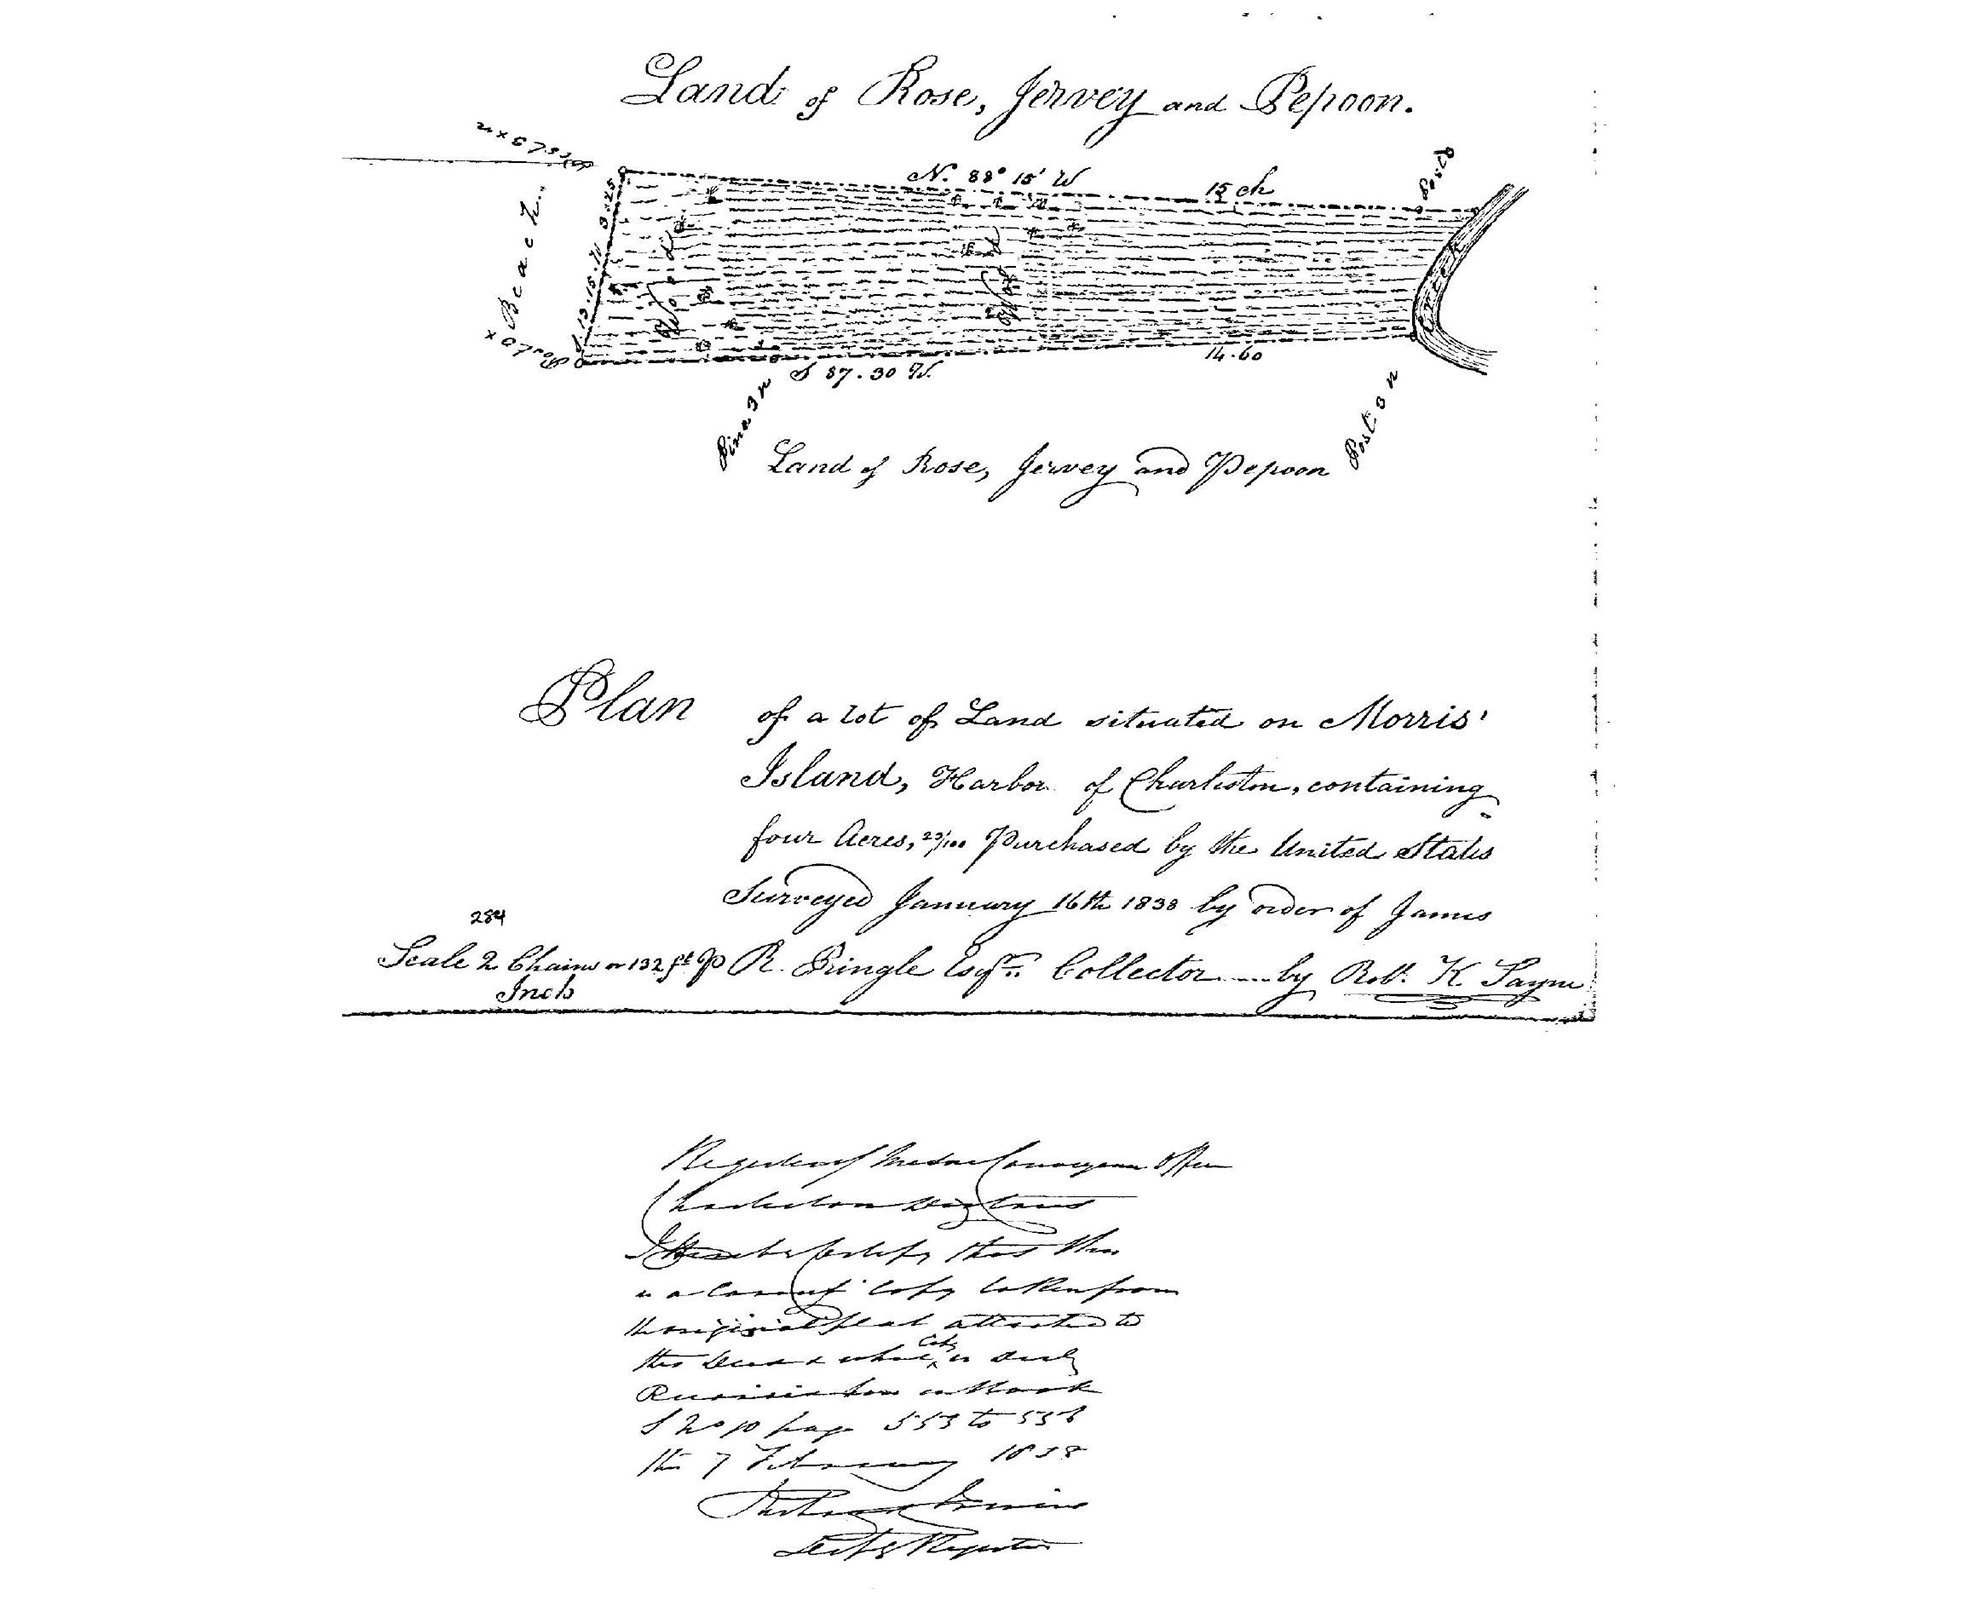 Land of Rose, Jervey and Pepoon.
N. 88° 15' W
15 ch
Post
Beach
3.25
Wood
Wood
Creek
S 87.30 W.
14.60
Pine 3 n
Post 3 n
Land of Rose, Jervey and Pepoon
Plan of a lot of Land situated on Morris'
Island, Harbor of Charleston, containing
four Acres, 23/100 Purchased by the United States
Surveyed January 16th 1838 by order of James
R. Pringle Esqr. Collector by Robt. K. Payne
284
Scale 2 Chains or 132 ft P
Inch
Register of Mesne Conveyance Office
Charleston District
I Hereby Certify that this
is a Correct Copy taken from
the original plat attached to
this Deed & which Copy is duly
Recorded in Book
S No 10 page 553 to
the 7 February 1838
Dept Register